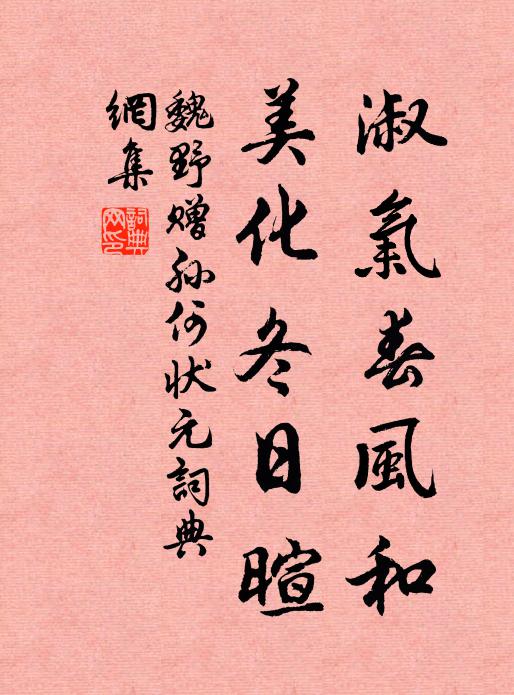 淑氣春風和
美化冬日暄
魏野贈孫何狀元詞典
網集
詞典網印